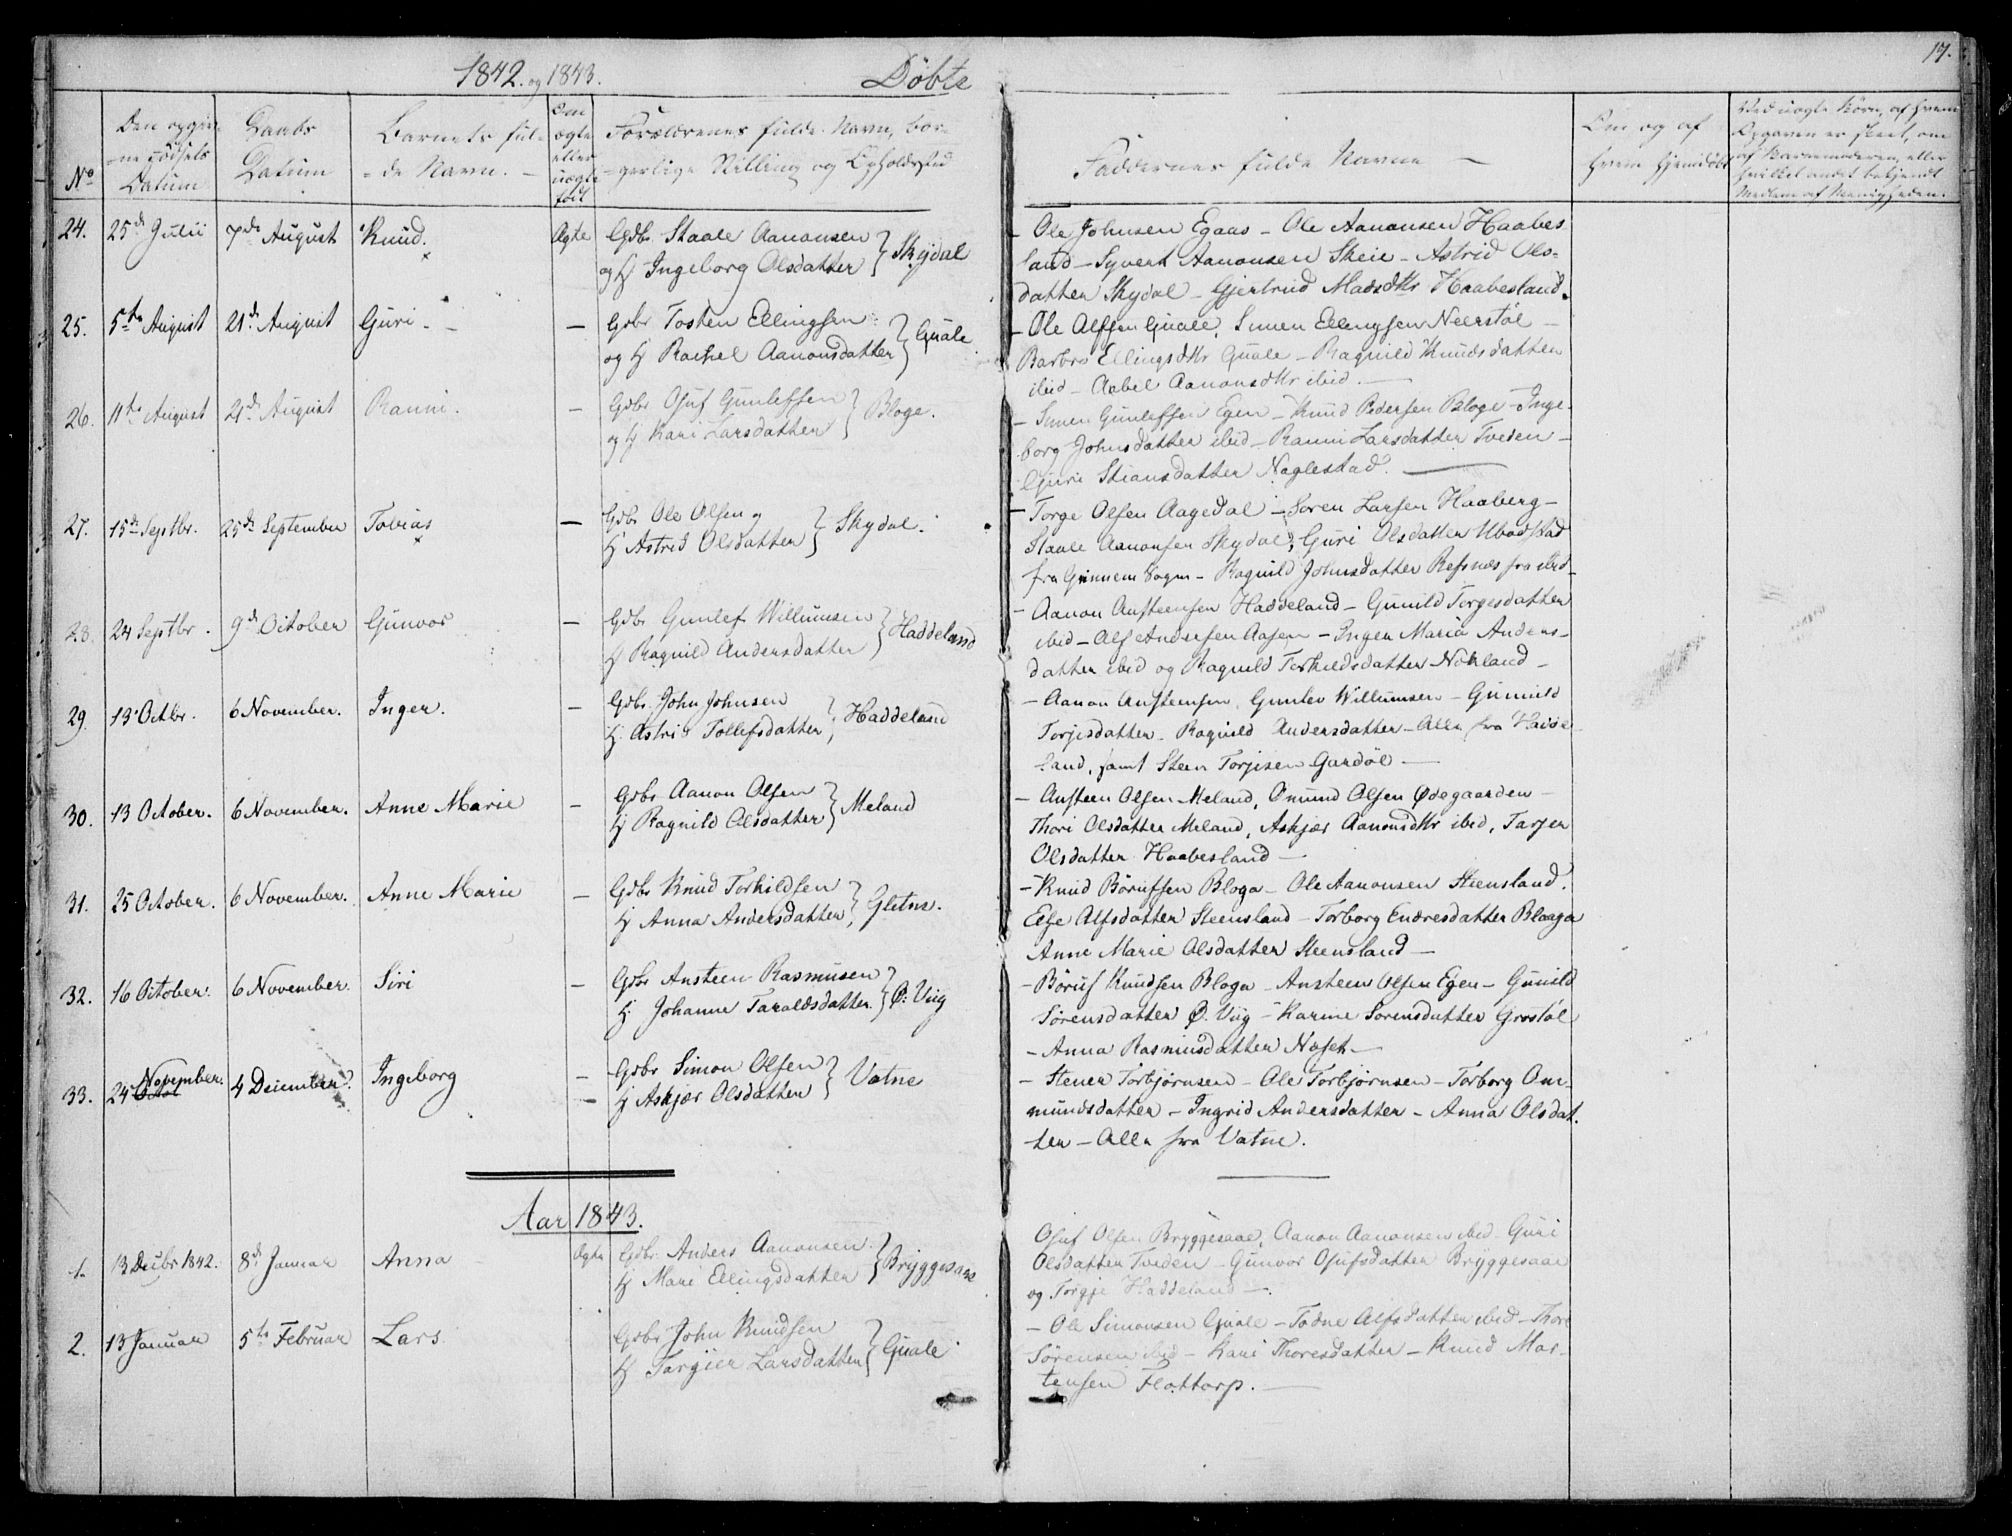 1842. og 1843.
Døbte
17.
No
Den opgiv-
ne Fødsels
Datum
Daabs
Datum
Barnets ful-
de Navn.
Om
ægte
eller
uægte
født
Forældrenes fulde Navn, bor-
gerlige Stilling og Opholdssted
Faddernes fulde Navne
Om og af
hvem hjemdøbt
Ved uægte Børn, af hvem
Opgaven er skeet, om
af Barnemoderen, eller
hvilket andet bekjendt
Medlem af Menigheden.
24. 25de Julii 7de August Knud. Ægte Gdbr. Staale Aanonsen
og H Ingeborg Olsdatter } Skydal
- Ole Johnsen Egaas - Ole Aanonsen Haabes
land - Syvert Aanonsen Skeie - Astrid Ols-
datter Skydal - Gjertrud Madsdttr Haabesland.
25. 5te August 21de August Guri - Gdbr Tosten Ellingsen
og H Rachel Aanonsdatter } Quale
- Ole Alfsen Quale, Simen Ellingsen Neerstøl -
Barbro Ellingsdttr Quale - Ragnild Knudsdatter
ibid - Aabel Aanonsdttr ibid.
26. 11te August 21de August Ranni. - Gdbr Osuf Gunlefsen
og H Kari Larsdatter } Bloge.
- Simen Gunlefsen Egen - Knud Pedersen Bloge - Inge-
borg Johnsdatter ibid - Ranni Larsdatter Tveden -
Guri Stiansdatter Naglestad.
27. 15de Septbr. 25de September Tobias - Gdbr Ole Olsen og
H Astrid Olsdatter } Skydal.
- Torge Olsen Aagedal - Soren Larsen Haaberg -
Staale Aanonsen Skydal, Guri Olsdatter Ubostad
fra Grinnem Sogn - Ragnild Johnsdatter Refsnes fra ibid
28. 24 Septbr. 9de October Gunvor - Gdbr Gunlef Willumsen
H Ragnild Andersdatter } Haddeland
- Aanon Austeensen Haddeland - Gunild Torgesdatter
ibid - Alf Andersen Aasen - Inger Maria Anders-
datter ibid og Ragnild Torkildsdatter Nokland -
29. 13 Octbr. 6 November. Inger. - Gdbr. John Johnsen
H. Astri Tollefsdatter } Haddeland
- Aanon Austeensen, Gunlev Willumsen - Gunnild
Torjesdatter - Ragnild Andersdatter - Alle fra Hadde
land, samt Steen Torjesen Gardøl -
30. 13 October. 6 November. Anne Marie - Gdbr Aanon Olsen
H Ragnild Olsdatter } Meland
- Austeen Olsen Meland, Omund Olsen Ødegaarden -
Thori Olsdatter Meland, Askjær Aanonsdttr ibid, Tarjer
Olsdatter Haabesland -
31. 25 October. 6 November. Anne Marie - Gdbr Knud Torkildsen
H Anna Andersdatter } Gletne.
- Knud Børufsen Bloga - Ole Aanonsen Steensland.
Else Alfsdatter Steensland - Torborg Endresdatter Blaaga
Anne Marie Olsdatter Steensland -
32. 16 October. 6 November. Siri - Gdbr Austeen Rasmusen
H. Johanne Taraldsdatter } Ø. Viig
- Børuf Knudsen Bloga - Austeen Olsen Egen - Gunild
Sørensdatter Ø. Viig - Karine Sorensdatter Grostøl
- Anna Rasmusdatter Naset -
33. 24 November. 4 December. Ingeborg - Gdbr Simon Olsen
H Askjær Olsdatter } Vatne
- Stener Torbjørnsen - Ole Torbjørnsen - Torborg Om-
mundsdatter - Ingrid Andersdatter - Anna Olsdat.
ter - Alle fra Vatne.
Aar 1843.
1. 13 Decbr 1842. 8de Januar Anna Ægte Gdbr. Anders Aanonsen
H Mari Ellingsdatter } Bryggesaae
Osuf Olsen Bryggesaae, Aanon Aanonsen ibid - Guri
Olsdatter Tveden - Gunvor Osufsdatter Bryggesaae
og Torgje Haddeland -
2. 13 Januar 5te Februar Lars. Gdbr John Knudsen
H Targier Larsdatter } Quale
- Ole Simonsen Quale - Todne Alfsdatter ibid - Thore
Sørensen ibid - Kari Thoresdatter - Knud Mor-
tensen Flottorp. -